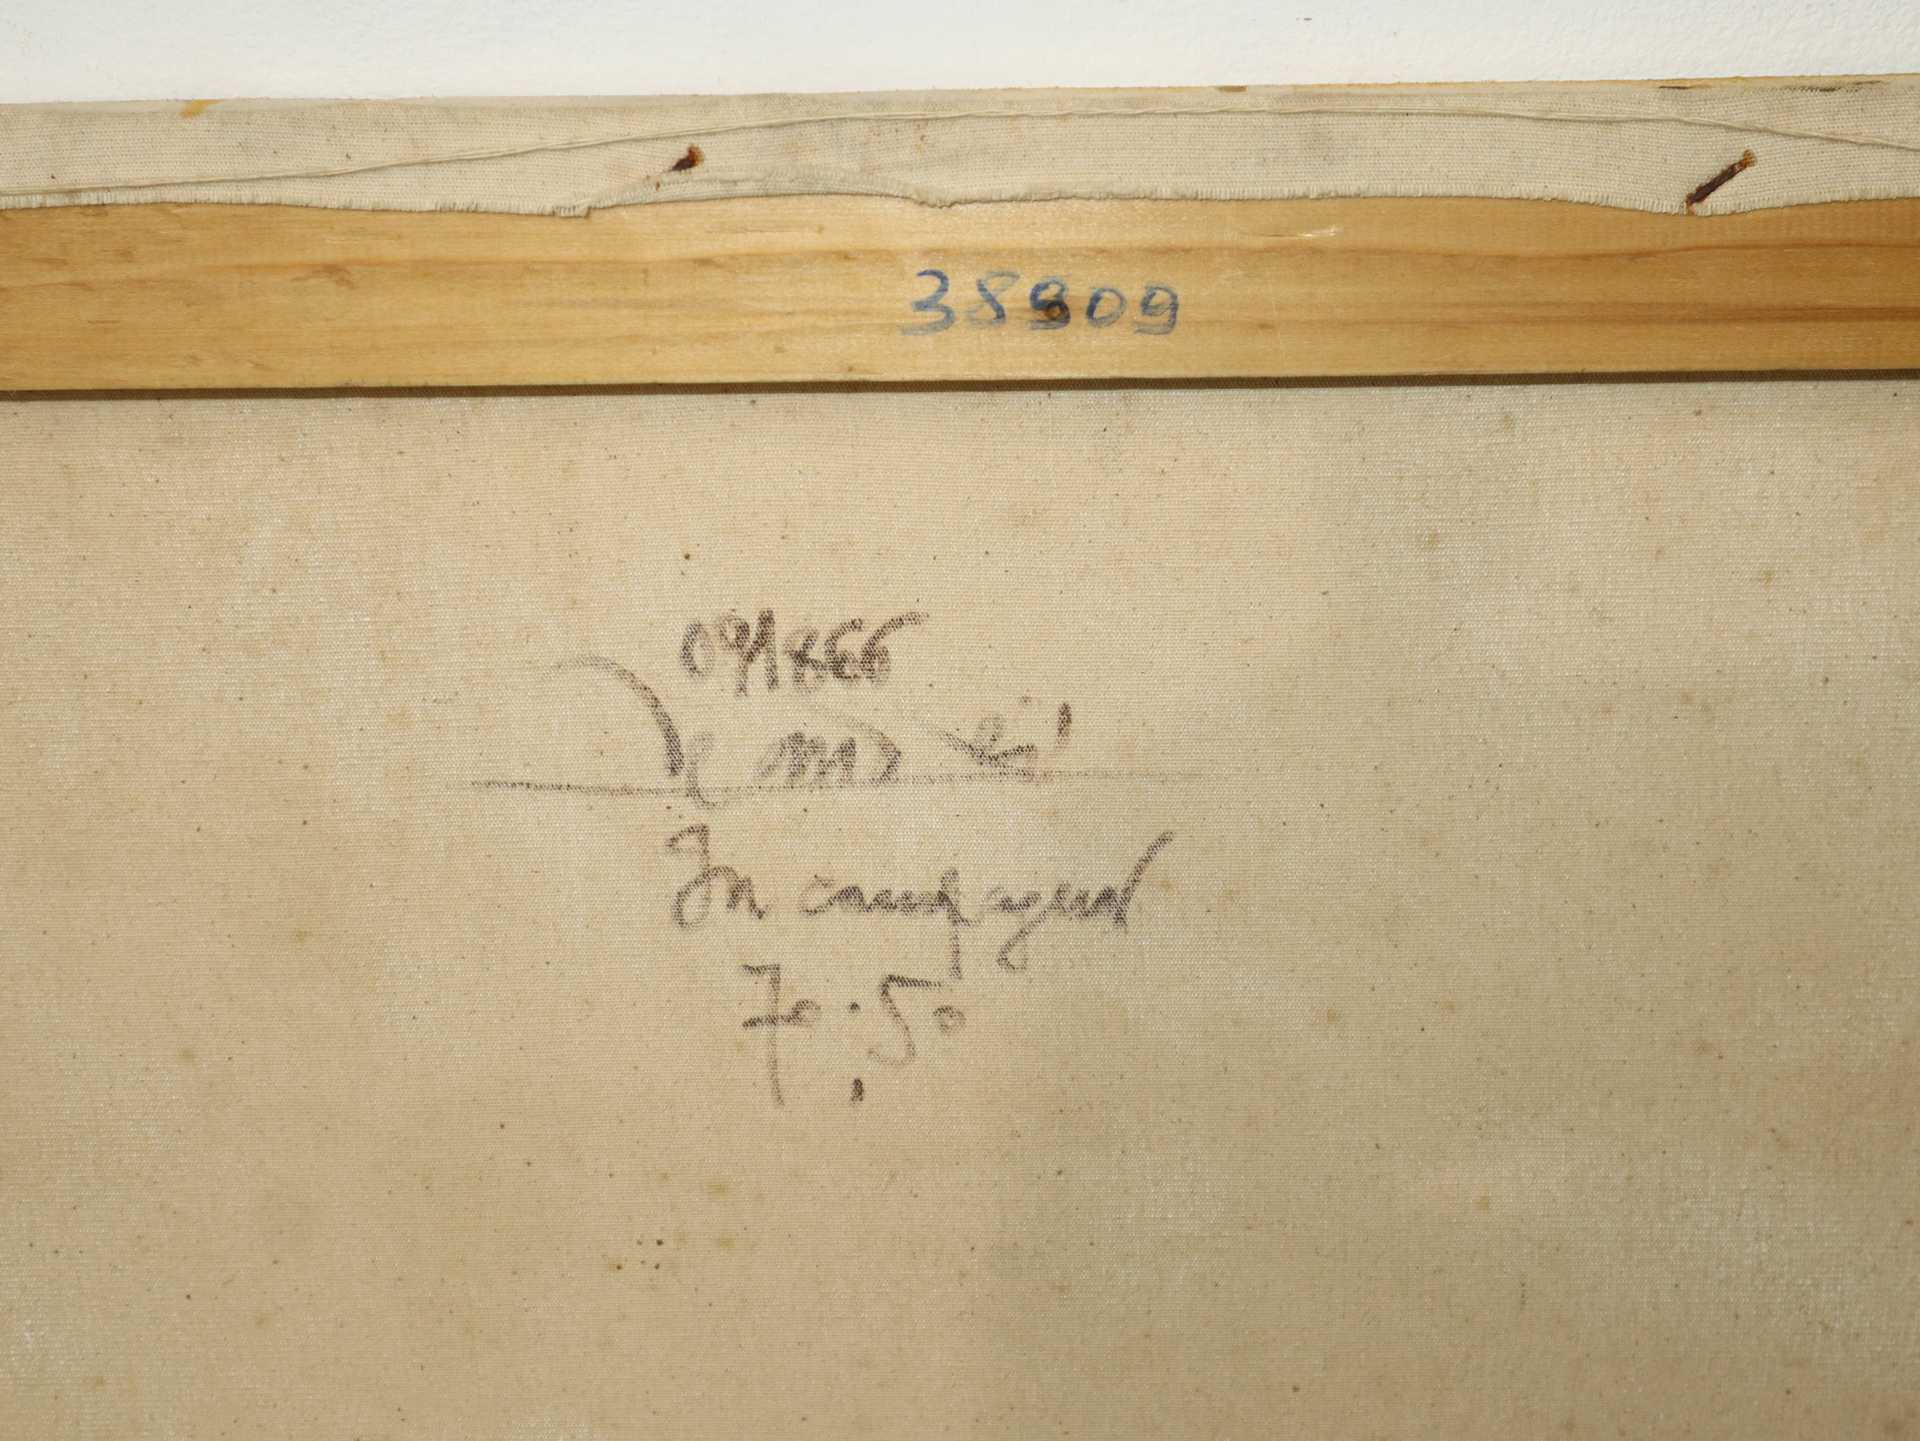 38909
091866
In campagna
70 · 50